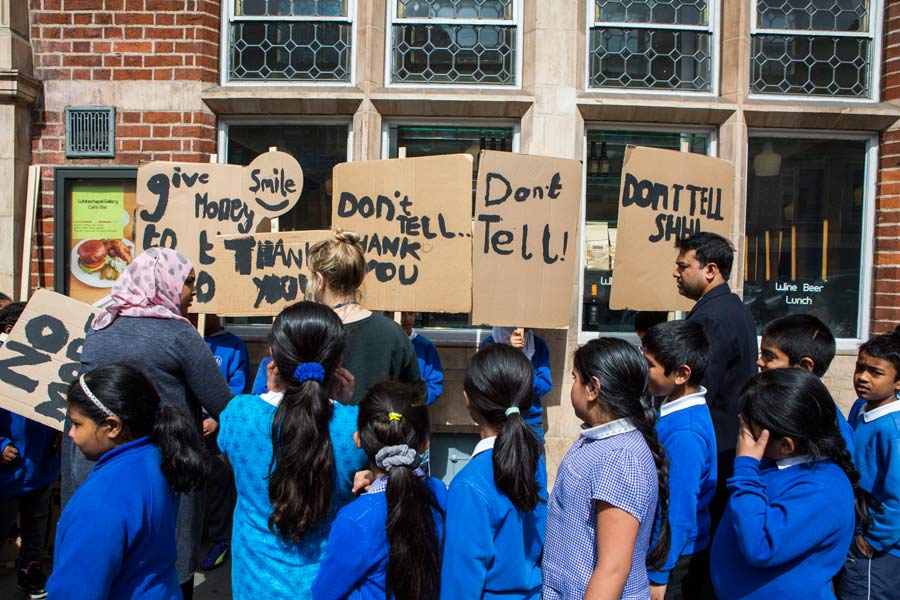 give
Money
to
Smile
Don't
TELL...
THANK
YOU
Don't
Tell!
DON'T TELL
SHHH
THANK
YOU
TO
NO
Whitechapel Gallery
Café / Bar
Wine Beer
Lunch